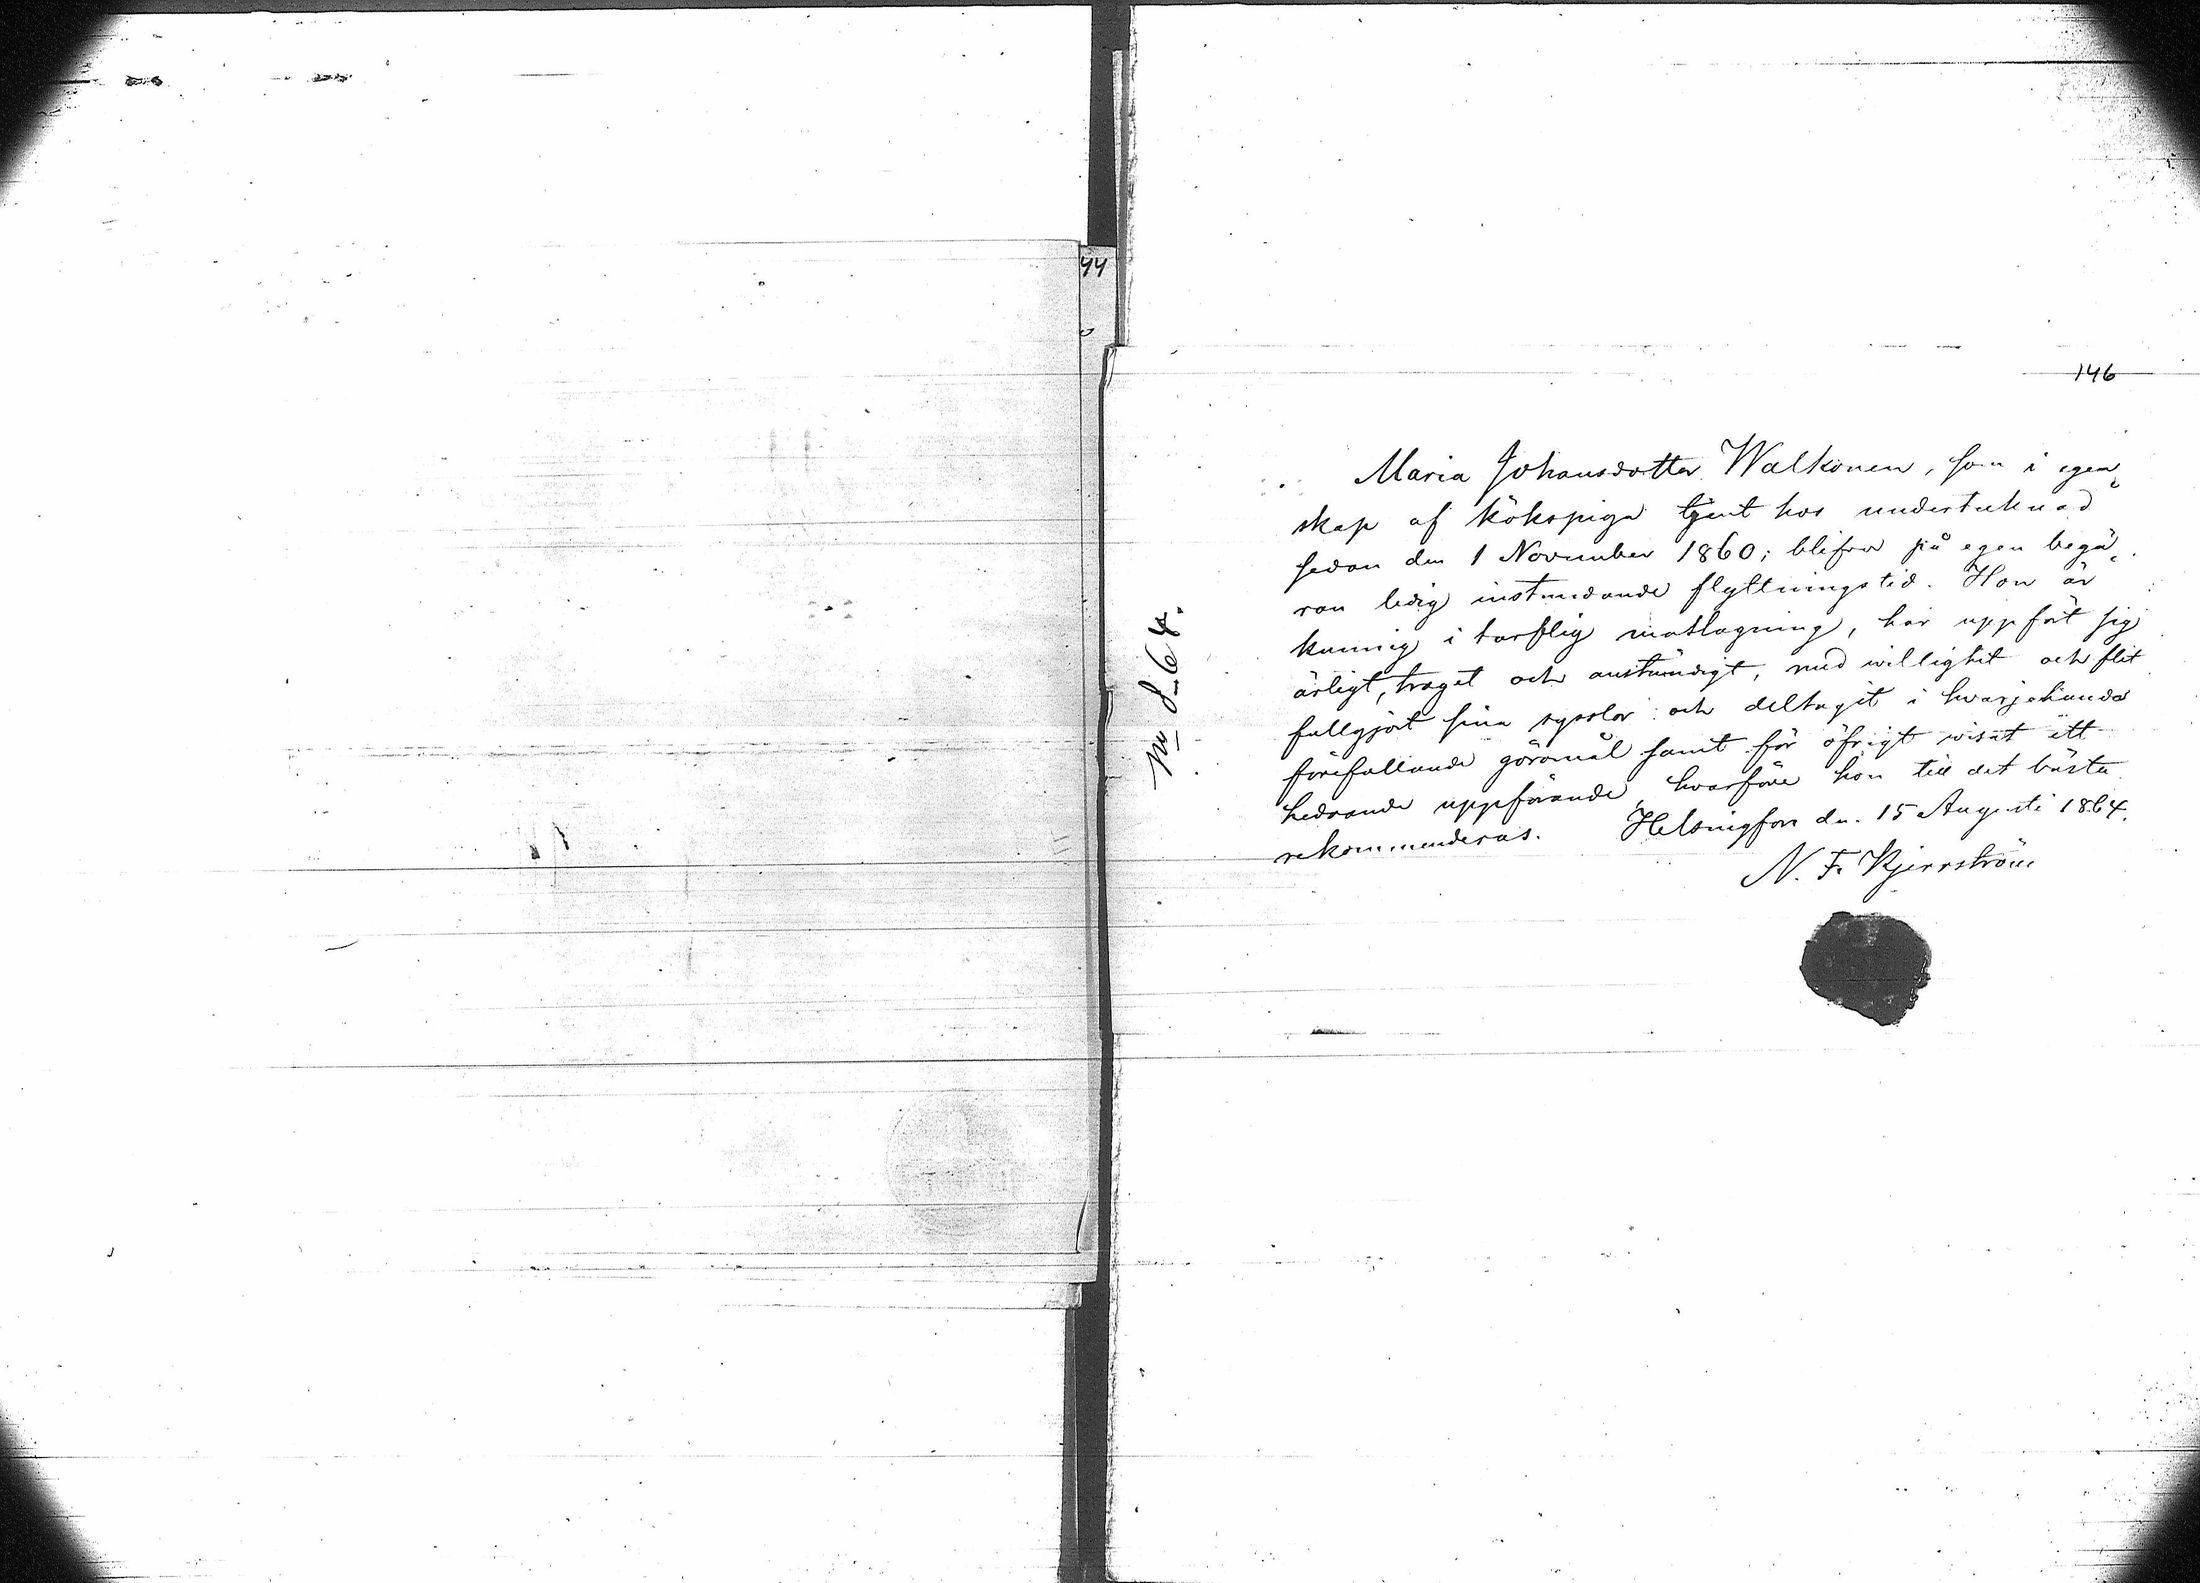 44
146
Maria Johansdotter Walkonen, som i egen„
skap af kökspiga tjent hos undertecknad
sedan den 1 November 1860; blifver på egen begä„
ran ledig instundande flyttningstid. Hon är
kunnig i tarflig matlagning, har uppfört sig
ärligt, troget och anständigt, med willighet och flit
fullgjort sina sysslor och deltagit i hvarjehanda
förefallande göromål samt för öfrigt wisat ett
hedrande uppförande, hvarföre hon till det bästa
rekommenderas. Helsingfors den 15 Augusti 1864.
N. F. Kjerrström